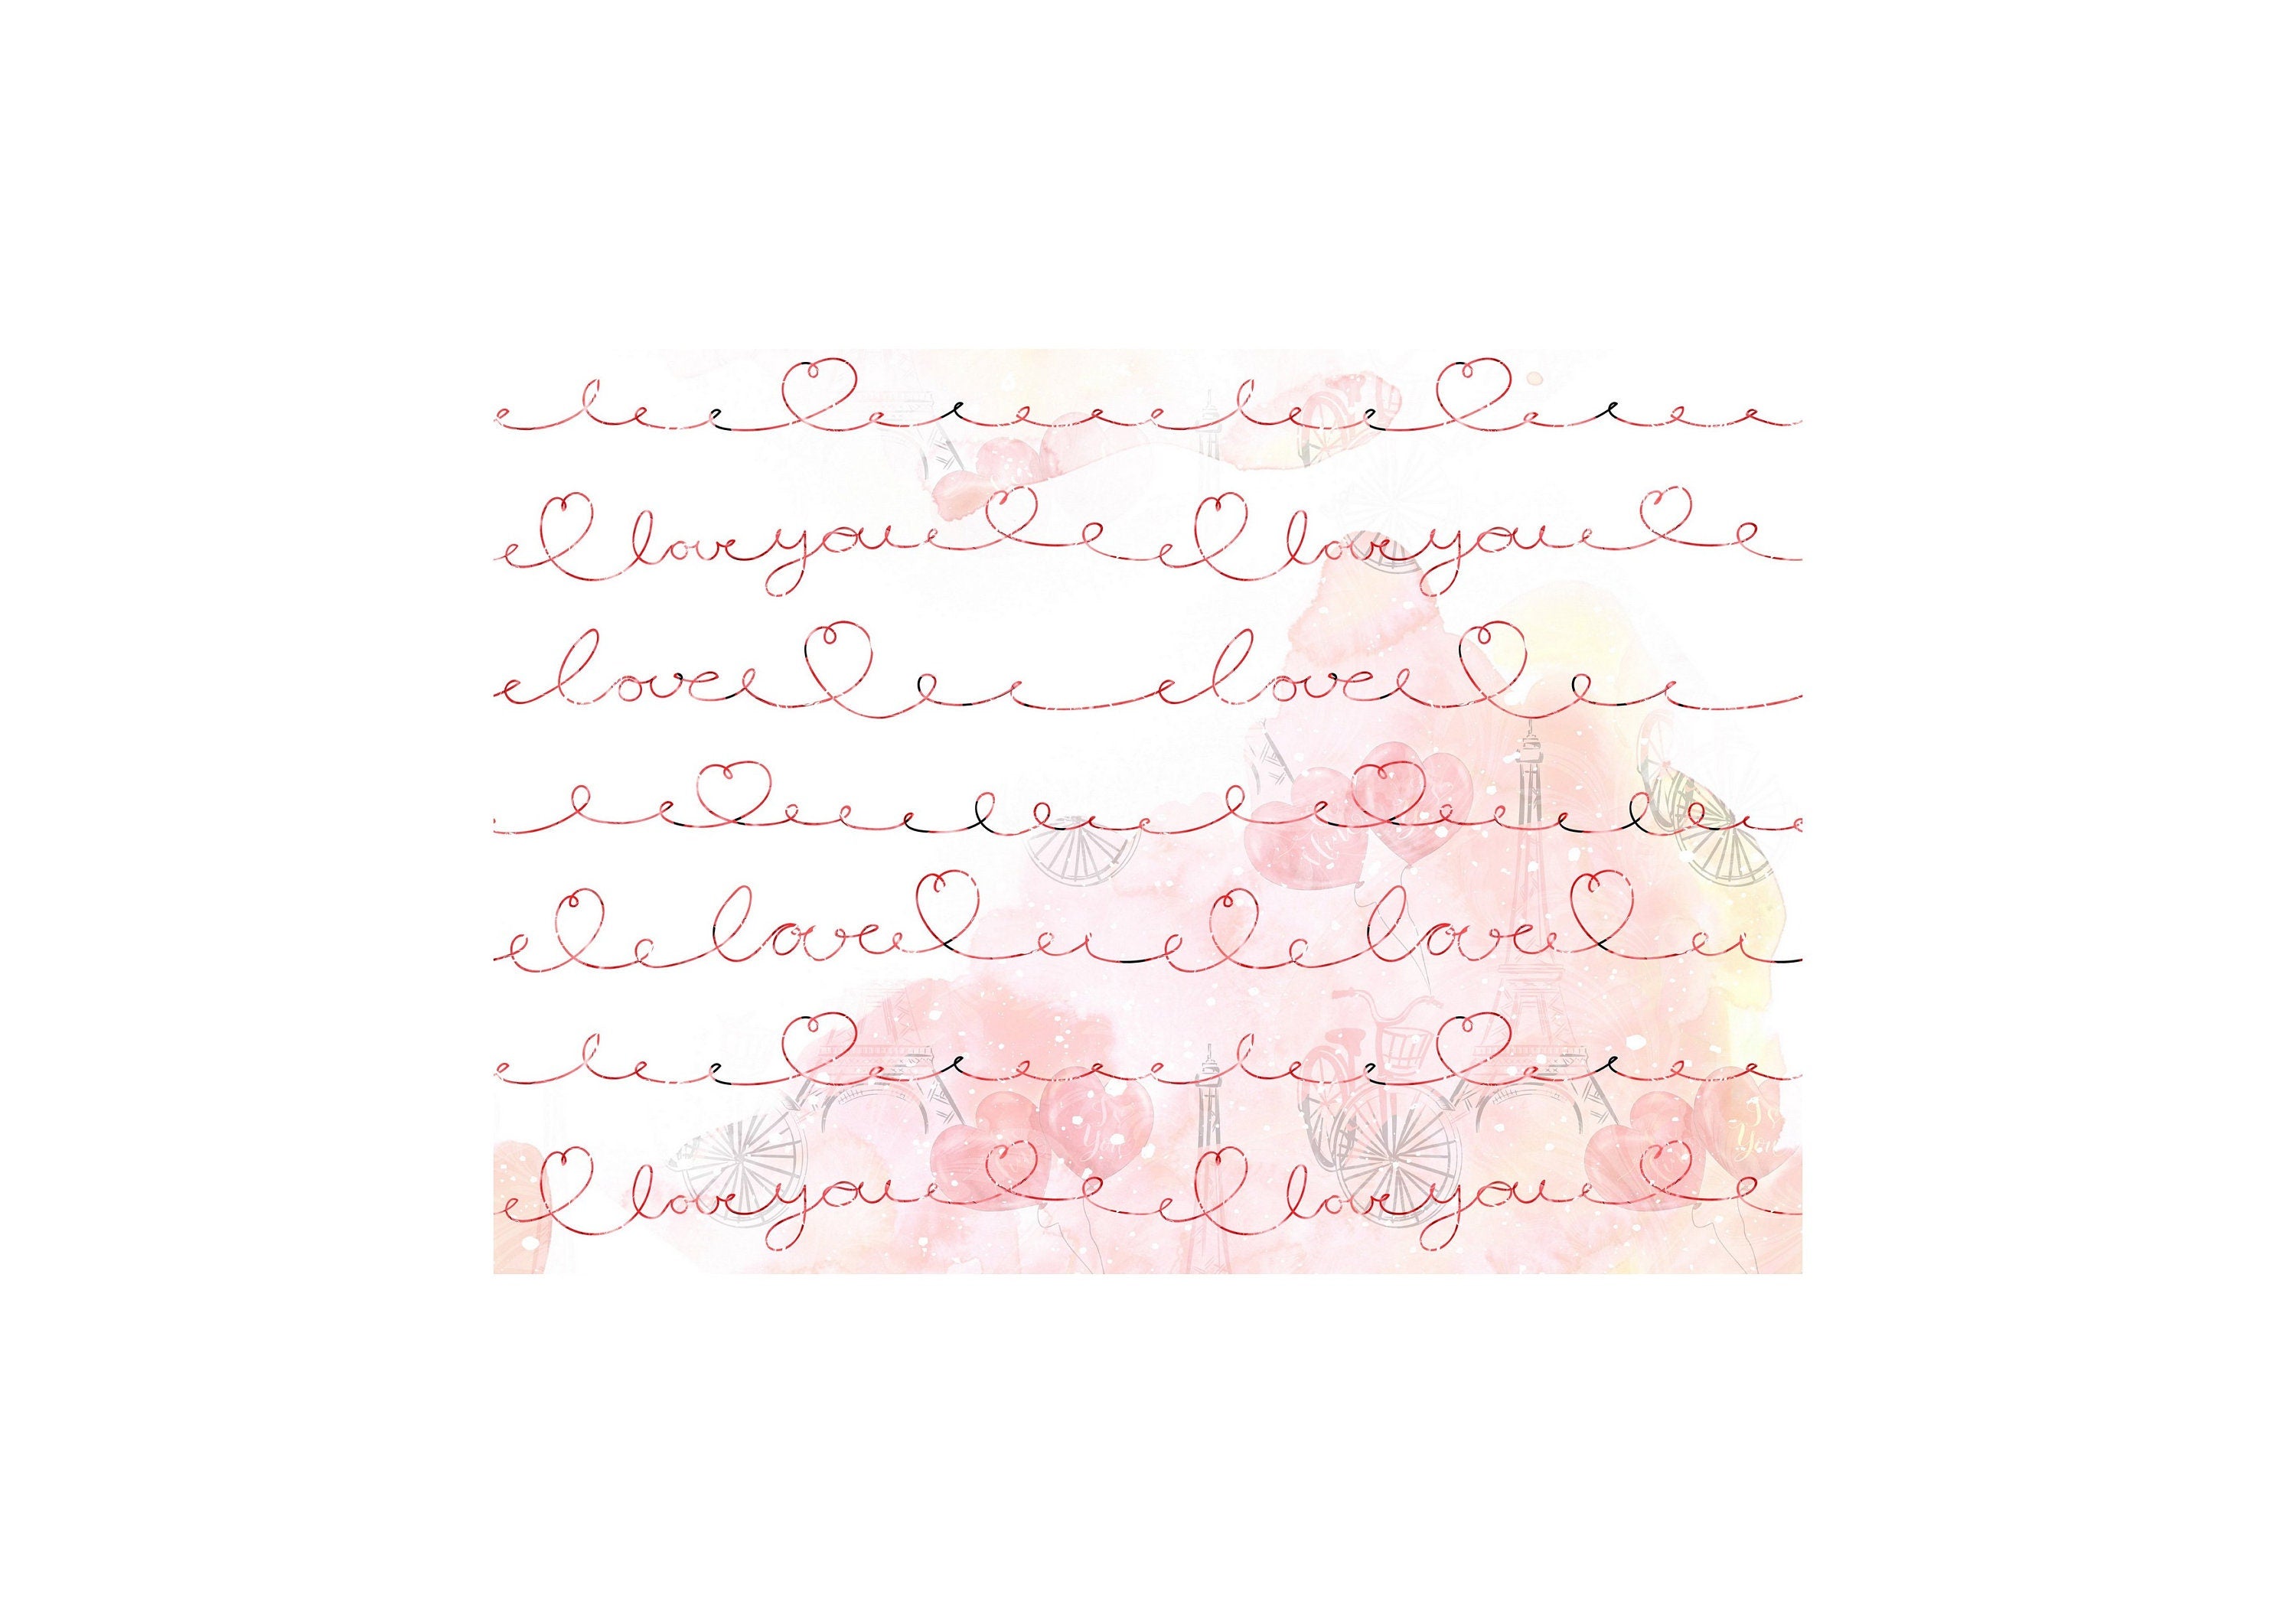 I love you I love you
love love
love love
I love you I love you